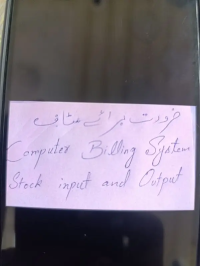 ضرورت برائے سٹاف
Computer Billing System
Stock input and Output